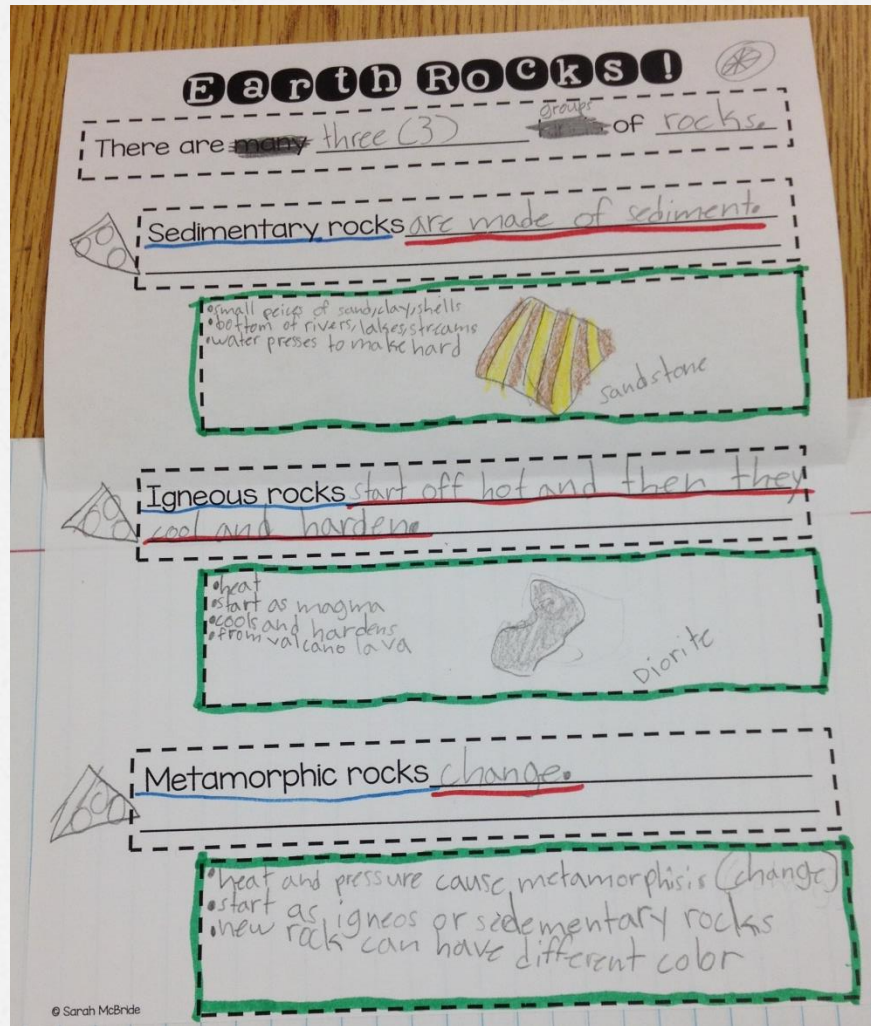 Earth Rocks!
groups
There are many three (3) of rocks.
Sedimentary rocks are made of sediment.
•small peics of sand,clay,shells
•bottom of rivers,lakes,streams
•water presses to make hard
sandstone
Igneous rocks start off hot and then they
cool and harden.
•heat
•start as magma
•cools and hardens
•from valcano lava
Diorite
Metamorphic rocks change.
•heat and pressure cause metamorphisis (change)
•start as igneos or sedementary rocks
•new rock can have different color
© Sarah McBride